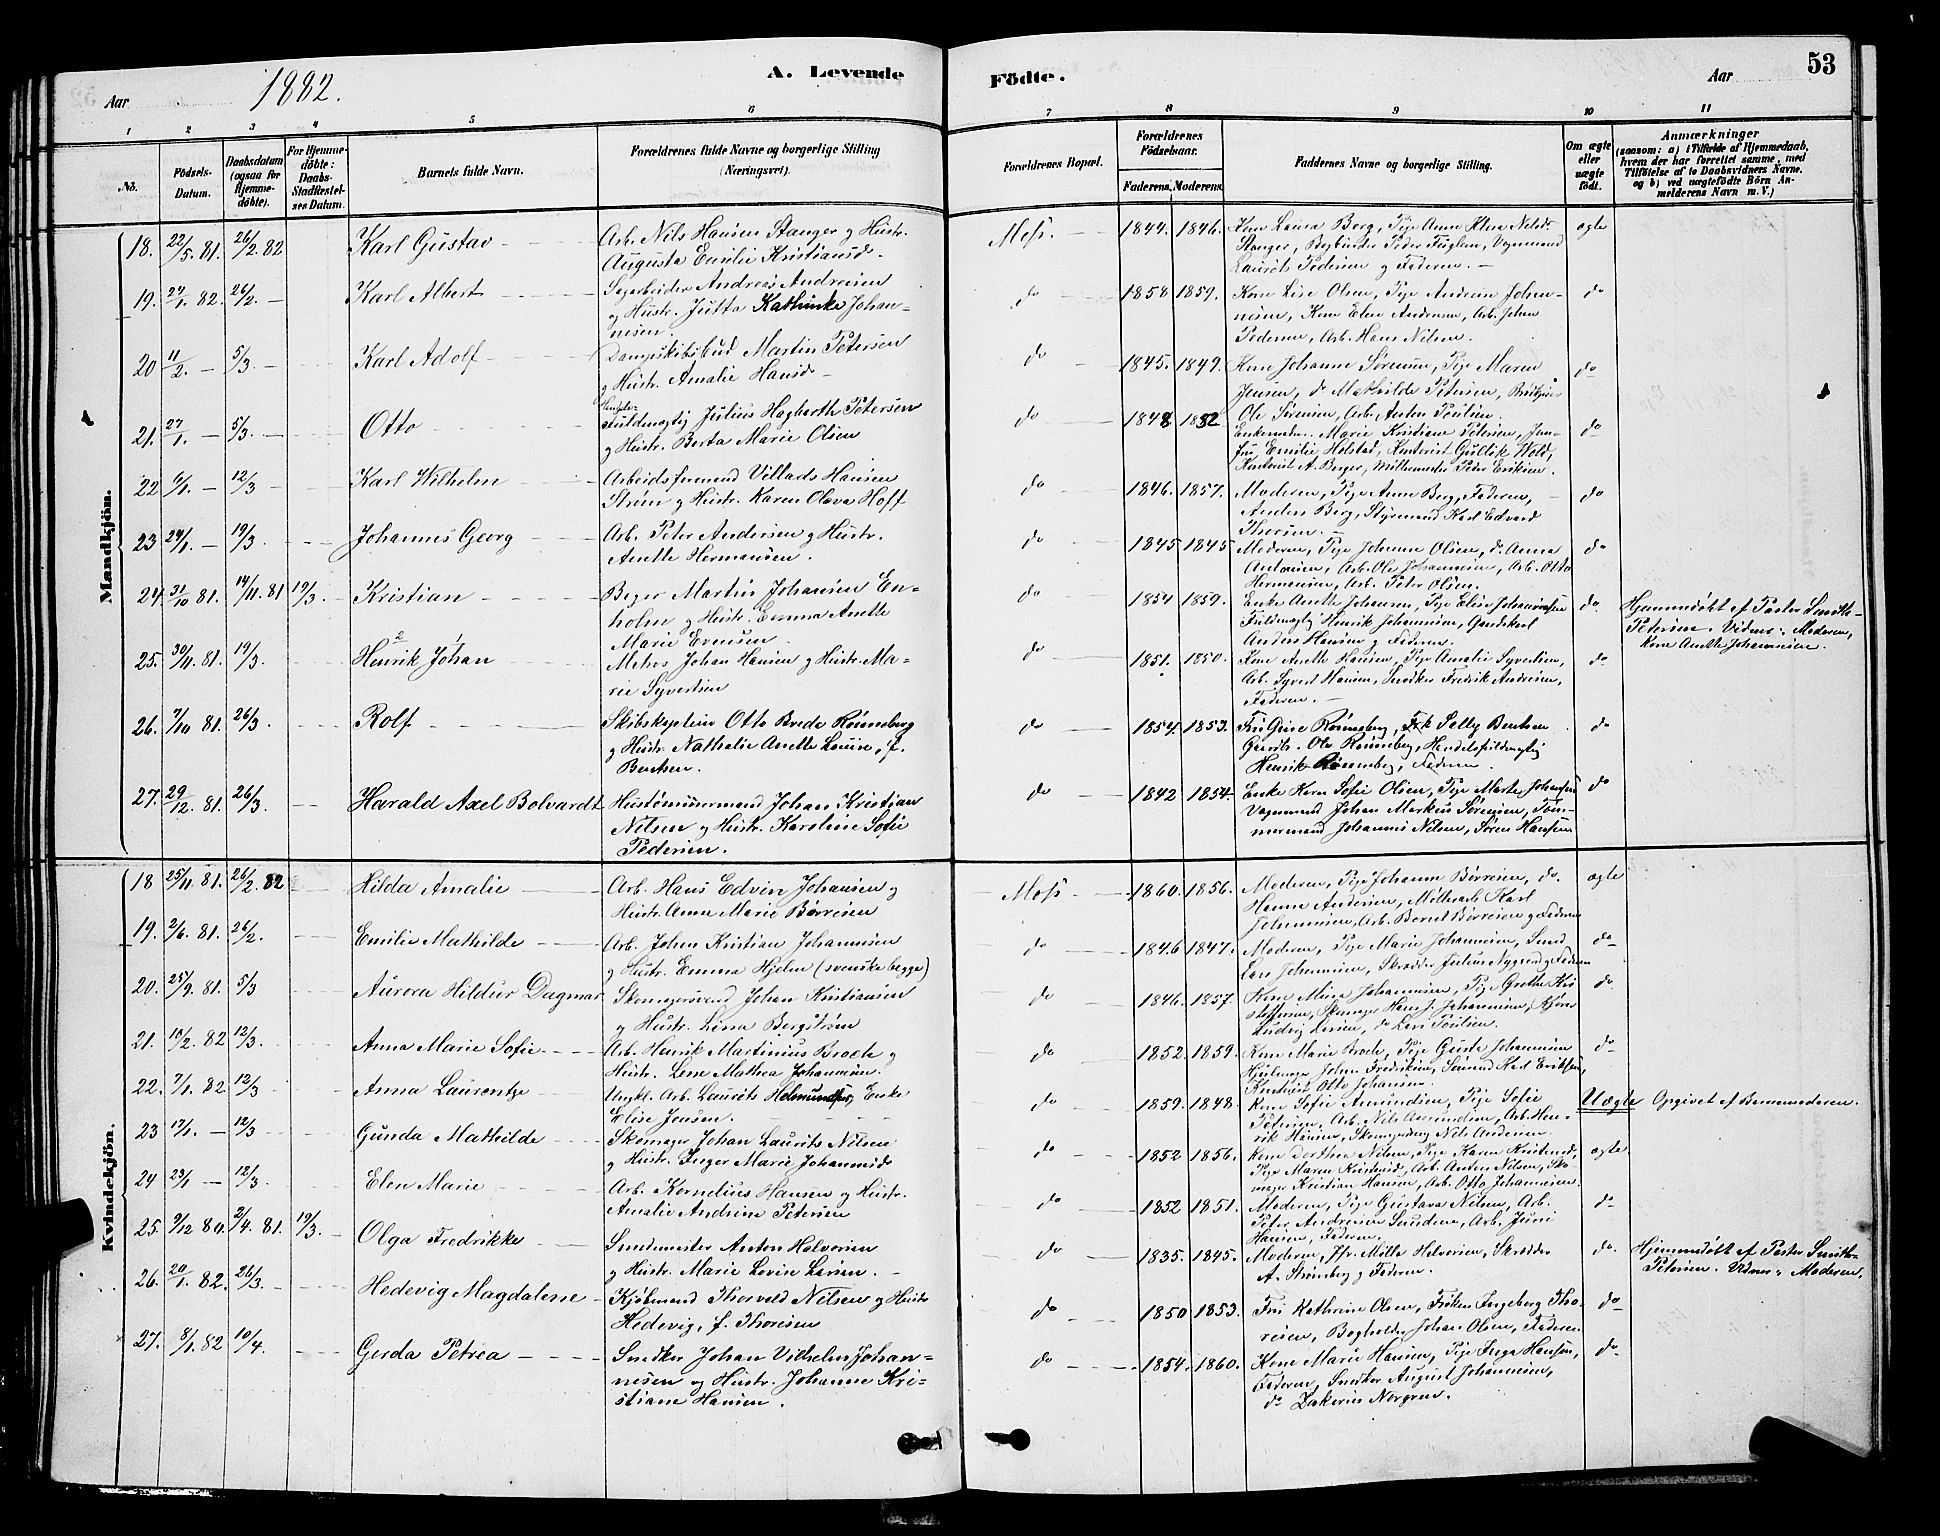 Aar 1882. A. Levende Födte. Aar 53
1 2 3 4 5 6 7 8 9 10 11
No. Födsels-Datum. Daabsdatum (ogsaa for Hjemmedöbte). For Hjemmedöbte: Daabs-Stadfæstelses Datum. Barnets fulde Navn. Forældrenes fulde Navne og borgerlige Stilling (Næringsvei). Forældrenes Bopæl. Forældrenes Födselsaar. Faderens. Moderens. Faddernes Navne og borgerlige Stilling. Om ægte eller uægte födt. Anmærkninger (saasom: a) i Tilfælde af Hjemmedaab, hvem der har forrettet samme, med Tilföielse af to Daabsvidners Navne, og b) ved uægtefödte Börn Anmelderens Navn m. V.)
Mandkjön.
18. 22/5. 81. 26/2. 82 Karl Gustav Arb. Nils Hansen Stanger og Hustr. Moss. 1844. 1846. Kone Laura Berg, Pige Anne Nilsd. ægte
Augusta Emilie Kristiansd. Stanger, Bogbinder Peder Fuglen, Vognmand
Laurits Pedersen og Faderen.
19. 27/1. 82. 26/2. Karl Albert Sagarbeider Andreas Andresen do 1858 1859. Kone Lise Olsen, Pige Andrine Johan- do
og Hustr. Jutta Kathinka Johan- nesen, Kone Elen Andersen, Arb. Johan
nesen. Pedersen, Arb. Hans Nilsen.
20 11/2. 5/3. Karl Adolf Dampskibsbud Martin Petersen do 1845. 1849. Kone Johanne Sörensen, Pige Maren do
og Hustr. Amalie Hansd. Jensen, do Mathilde Petersen,
Ole Sörensen, Arb. Anton Poulsen.
21. 27/1. 5/3. Otto Handels-
fuldmægtig Julius Hagbarth Petersen do 1848 1852 Enkemadm. Marie Kristiane Petersen, Jom- do
og Hustr. Berta Marie Olsen fru Emilie Holstad, Kontorist Gullik Wold,
Kontorist A. Berger, Peder Eriksen.
22 6/1. 12/3 Karl Wilhelm Arbeidsformand Villads Hansen do 1846. 1857. Moderen, Pige Anne Berg, Faderen, do
Ström og Hustr. Karen Olava Hoff Anders Berg, Styrmand Karl Edvard
Thorsen.
23 24/1. 19/3. Johannes Georg Arb. Peter Andersen og Hustr. do 1845 1845 Moderen, Pige Johanne Olsen, do Anna do
Anette Hermansen. Antonsen, Arb. Ole Johannesen, Arb. Otto
Hermansen, Arb. Peter Olsen.
24. 31/10 81. 14/11. 81 19/3. Kristian Bager Martin Johansen En- do 1854 1859. Enke Anette Johansen, Pige Elise Johannesen do. Hjemmedöbt af Pastor Smith-
holm og Hustr. Emma Anette Fuldmægtig Henrik Johannesen, Gaardskarl Petersen. Vidner: Moderen,
Marie Evensen. Anders Hansen og Faderen. Kone Anette Johannesen.
25. 30/11 81. 19/3. Henrik Johan Matros Johan Hansen og Hustr. Ma- do 1851. 1850. Kone Anette Hansen, Pige Amalie Syvertsen, do
rie Syvertsen Arb. Syvert Hansen, Snedker Fredrik Andresen,
Faderen.
26. 7/10 81. 26/3. Rolf Skibskaptein Otto Brede Rönneberg do 1854. 1853. Fru Gine Rönneberg, Frk Selly Bentsen do
og Hustr. Nathalie Anette Louise, f. Ole Rönneberg, Handelsfuldmægtig
Bentsen. Henrik Rönneberg, Faderen.
27. 29/12 81. 26/3. Harald Axel Bolvardt Hustömmermand Johan Kristian do 1842 1854. Enke Karen Sofie Olsen, Pige Marte Johansen do
Nilsen og Hustr. Karoline Sofie Vognmand Johan Markus Sörensen, Töm-
Pedersen. mermand Johannes Nilsen, Sören Hansen
Kvindekjön.
18 25/11 81. 26/2. 82 Hilda Amalie Arb. Hans Edvin Johansen og Moss 1860. 1856. Moderen, Pige Johanne Börresen, do. ægte
Hustr. Anne Marie Börresen Hanna Andersen, Möllearb. Karl
Johannesen, Arb. Bernt Börresen og Faderen
19. 2/6. 81. 26/2. Emilie Mathilde Arb. Johan Kristian Johannesen do 1846 1847. Moderen, Pige Marie Johannesen, Smed do
og Hustr. Emma Hjelm (svenske begge) Lars Johannesen, Skrædder Julius Nygren og Faderen
20. 25/9. 81. 5/3 Aurora Hildur Dagmar Skomagersvend Johan Kristiansen do 1846. 1857. Kone Mina Johannesen, Pige Grethe Kri- do
og Hustr. Lina Bergström stoffersen, Skomager Hans J. Johannesen,
Ludvig Larsen, do Lars Poulsen.
21. 10/2. 82 12/3. Anna Marie Sofie Arb. Henrik Martinius Brode og do 1852. 1859. Kone Marie Brode, Pige Guste Johannesen do
Hustr. Lene Mathea Johannesen. Hjulmager Johan Fredriksen, Sömand Karl Eriksen,
Kontorist Otto Johansen.
22. 7/1. 82 12/3 Anna Laurentze Ungkl. Arb. Laurits Helmundsen, Enke do 1859. 1848. Kone Sofie Amundsen, Pige Sofie Uægte Opgivet af Barnemoderen.
Elise Jensen. Petersen, Arb. Nils Amundsen, Arb. Hen-
rik Hansen, Nils Andersen.
23 17/1. 12/3 Gunda Mathilde Skomager Johan Laurits Nilsen do 1852 1856. Kone Dorthea Nilsen, Pige Karen Kristensd, ægte
og Hustr. Inger Marie Johannesd. Pige Maren Kristensd, Arb. Anton Nilsen, Sko-
mager Kristian Hansen, Arb. Otto Johannesen.
24 23/1. 12/3. Elen Marie Arb. Kornelius Hansen og Hustr. do 1852 1851. Moderen, Pige Gustava Nilsen, Arb. do
Amalie Andrine Petersen Peter Andresen Sunden, Arb.
Hansen, Faderen.
25. 9/12 80. 2/4. 81. 19/3. Olga Fredrikke Anton Halvorsen do 1835. 1845. Moderen, Jfr. Mölla Halvorsen, Skrædder do. Hjemmedöbt af Pastor Smith-
og Hustr. Marie Lovin Larsen. A. Strömberg og Faderen. Petersen. Vidner: Moderen,
26. 20/1. 82. 26/3. Hedevig Magdalene Kjöbmand Thorvald Nilsen og Hustr do 1850 1853. Fru Kathrine Olsen, Fröken Ingeborg Tho- do
Hedevig, f. Thoresen resen, Bogholder Johan Olsen, Faderen
27. 8/1. 82 10/4. Gerda Petrea Snedker Johan Vilhelm Johan- do 1854. 1860. Kone Marie Hansen, Pige Inga Hansen, do
nesen og Hustr. Johanne Kri- Faderen, Snedker August Johannesen,
stiane Hansen. do Zakarius Norgren.